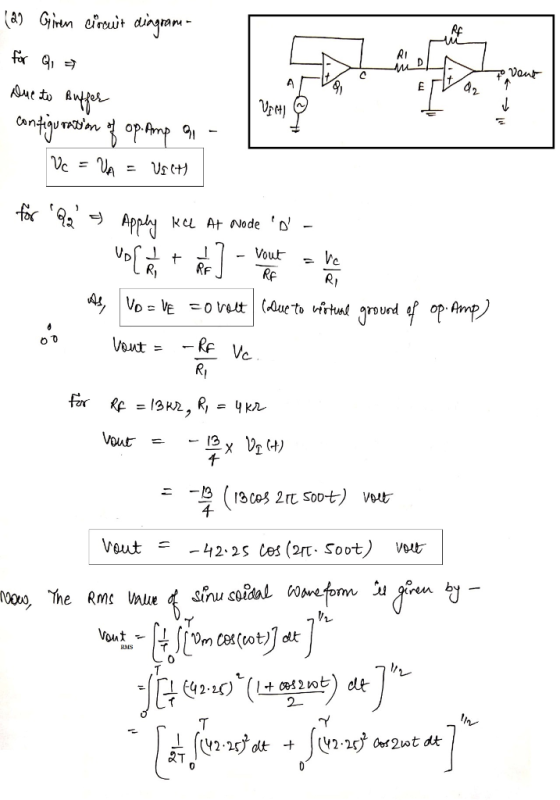 (2) Given circuit diagram-
for Q1 ⇒
Due to Buffer
configuration of op.Amp Q1 -
Vc = VA = VI(t)
Rf
R1 D
A
- +
Q1
C
E
- +
Q2
Vout
VI(t)
for 'Q2' ⇒ Apply KCL At Node 'D' -
VD[1/R1 + 1/RF] - Vout/RF = Vc/R1
As, VD = VE = 0 volt (Due to virtual ground of op.Amp)
∴ Vout = -RF/R1 Vc.
for RF = 13KΩ, R1 = 4KΩ
Vout = -13/4 x VI(t)
= -13/4 (13 cos 2π 500t) volt
Vout = -42.25 cos(2π. 500t) volt
Now, The RMS Value of sinusoidal waveform is given by -
Vout RMS = [1/T ∫0^T [Vm cos(wt)] dt]^1/2
= ∫0^T [1/T (-42.25)^2 (1+cos2wt/2) dt]^1/2
= [1/2T ∫0^T (42.25)^2 dt + ∫0^T (42.25)^2 cos2wt dt]^1/2